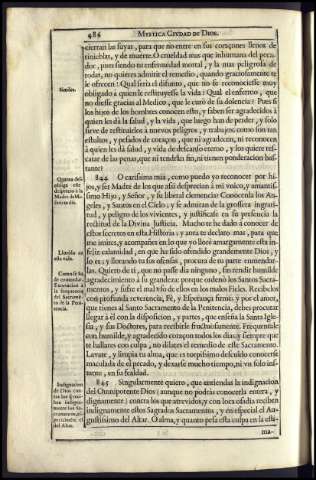 486 MYSTICA CIUDAD DE DIOS.
cierran las suyas, para que no entre en sus coraçones llenos de
tinieblas, y de muerte. O crueldad mas que inhumana del peca-
dor, pues siendo tu enfermedad mortal, y la mas peligrosa de
todas, no quieres admitir el remedio, quando graciosamente te
le ofrecen! Qual seria el difunto, que no se reconociesse muy
obligado à quien le restituyesse la vida? Qual el enfermo, que
no diesse gracias al Medico, que le curò de su dolencia? Pues si
los hijos de los hombres conocen esto, y saben ser agradecidos à
quien les dà la salud, y la vida, que luego han de perder, y solo
sirve de restituirlos à nuevos peligros, y trabajos; como son tan
estultos, y pesados de coraçon, que ni agradecen, ni reconocen
à quien les dà salud, y vida de descanso eterno, y los quiere res-
catar de las penas, que ni tendràn fin, ni tienen ponderacion bas-
tante?
844 O carissima mia, como puedo yo reconocer por hi-
jos, y ser Madre de los que assi desprecian à mi
Hijo, y Señor, y su liberal clemencia? Conocenla los An-
geles, y Santos en el Cielo, y se admiran de la grossera ingrati-
tud, y peligro de los vivientes, y justificase en su presencia la
rectitud de la Divina Justicia. Mucho te he dado à conocer de
estos secretos en esta Historia; y aora te declaro mas, para que
me imites, y acompañes en lo que yo lloré amargamente esta in-
felìz calamidad, en que ha sido ofendido grandemente Dios, y
lo es; y llorando tu sus ofensas, procura de tu parte enmendar-
las. Quiero de ti, que no passe dia ninguno, sin rendir humilde
agradecimiento à su grandeza; porque ordenò los Santos Sacra-
mentos, y sufre el mal uso de ellos en los malos Fieles. Recibelos
con profunda reverencia, Fé, y Esperança firme; y por el amor,
que tienes al Santo Sacramento de la Penitencia, debes procurar
llegar à èl con la disposicion, y partes, que enseña la Santa Igle-
sia, y sus Doctores, para recibirle fructuosamente. Frequentale
con humilde, y agradecido coraçon todos los dias; y siempre que
te hallares con culpa, no dilates el remedio de este Sacramento.
Lavate, y limpia tu alma, que es torpissimo descuido conocerse
maculada de el pecado, y dexarse mucho tiempo, ni un solo ins-
tante, en su fealdad.
845 Singularmente quiero, que entiendas la indignacion
del Omnipotente Dios (aunque no podràs conocerla entera, y
dignamente) contra los que atrevidos, y con loca osadia reciben
indignamente estos Sagrados Sacramentos, y en especial el Au-
gustissimo del Altar. O alma, y quanto pesa esta culpa en la esti-
ma-